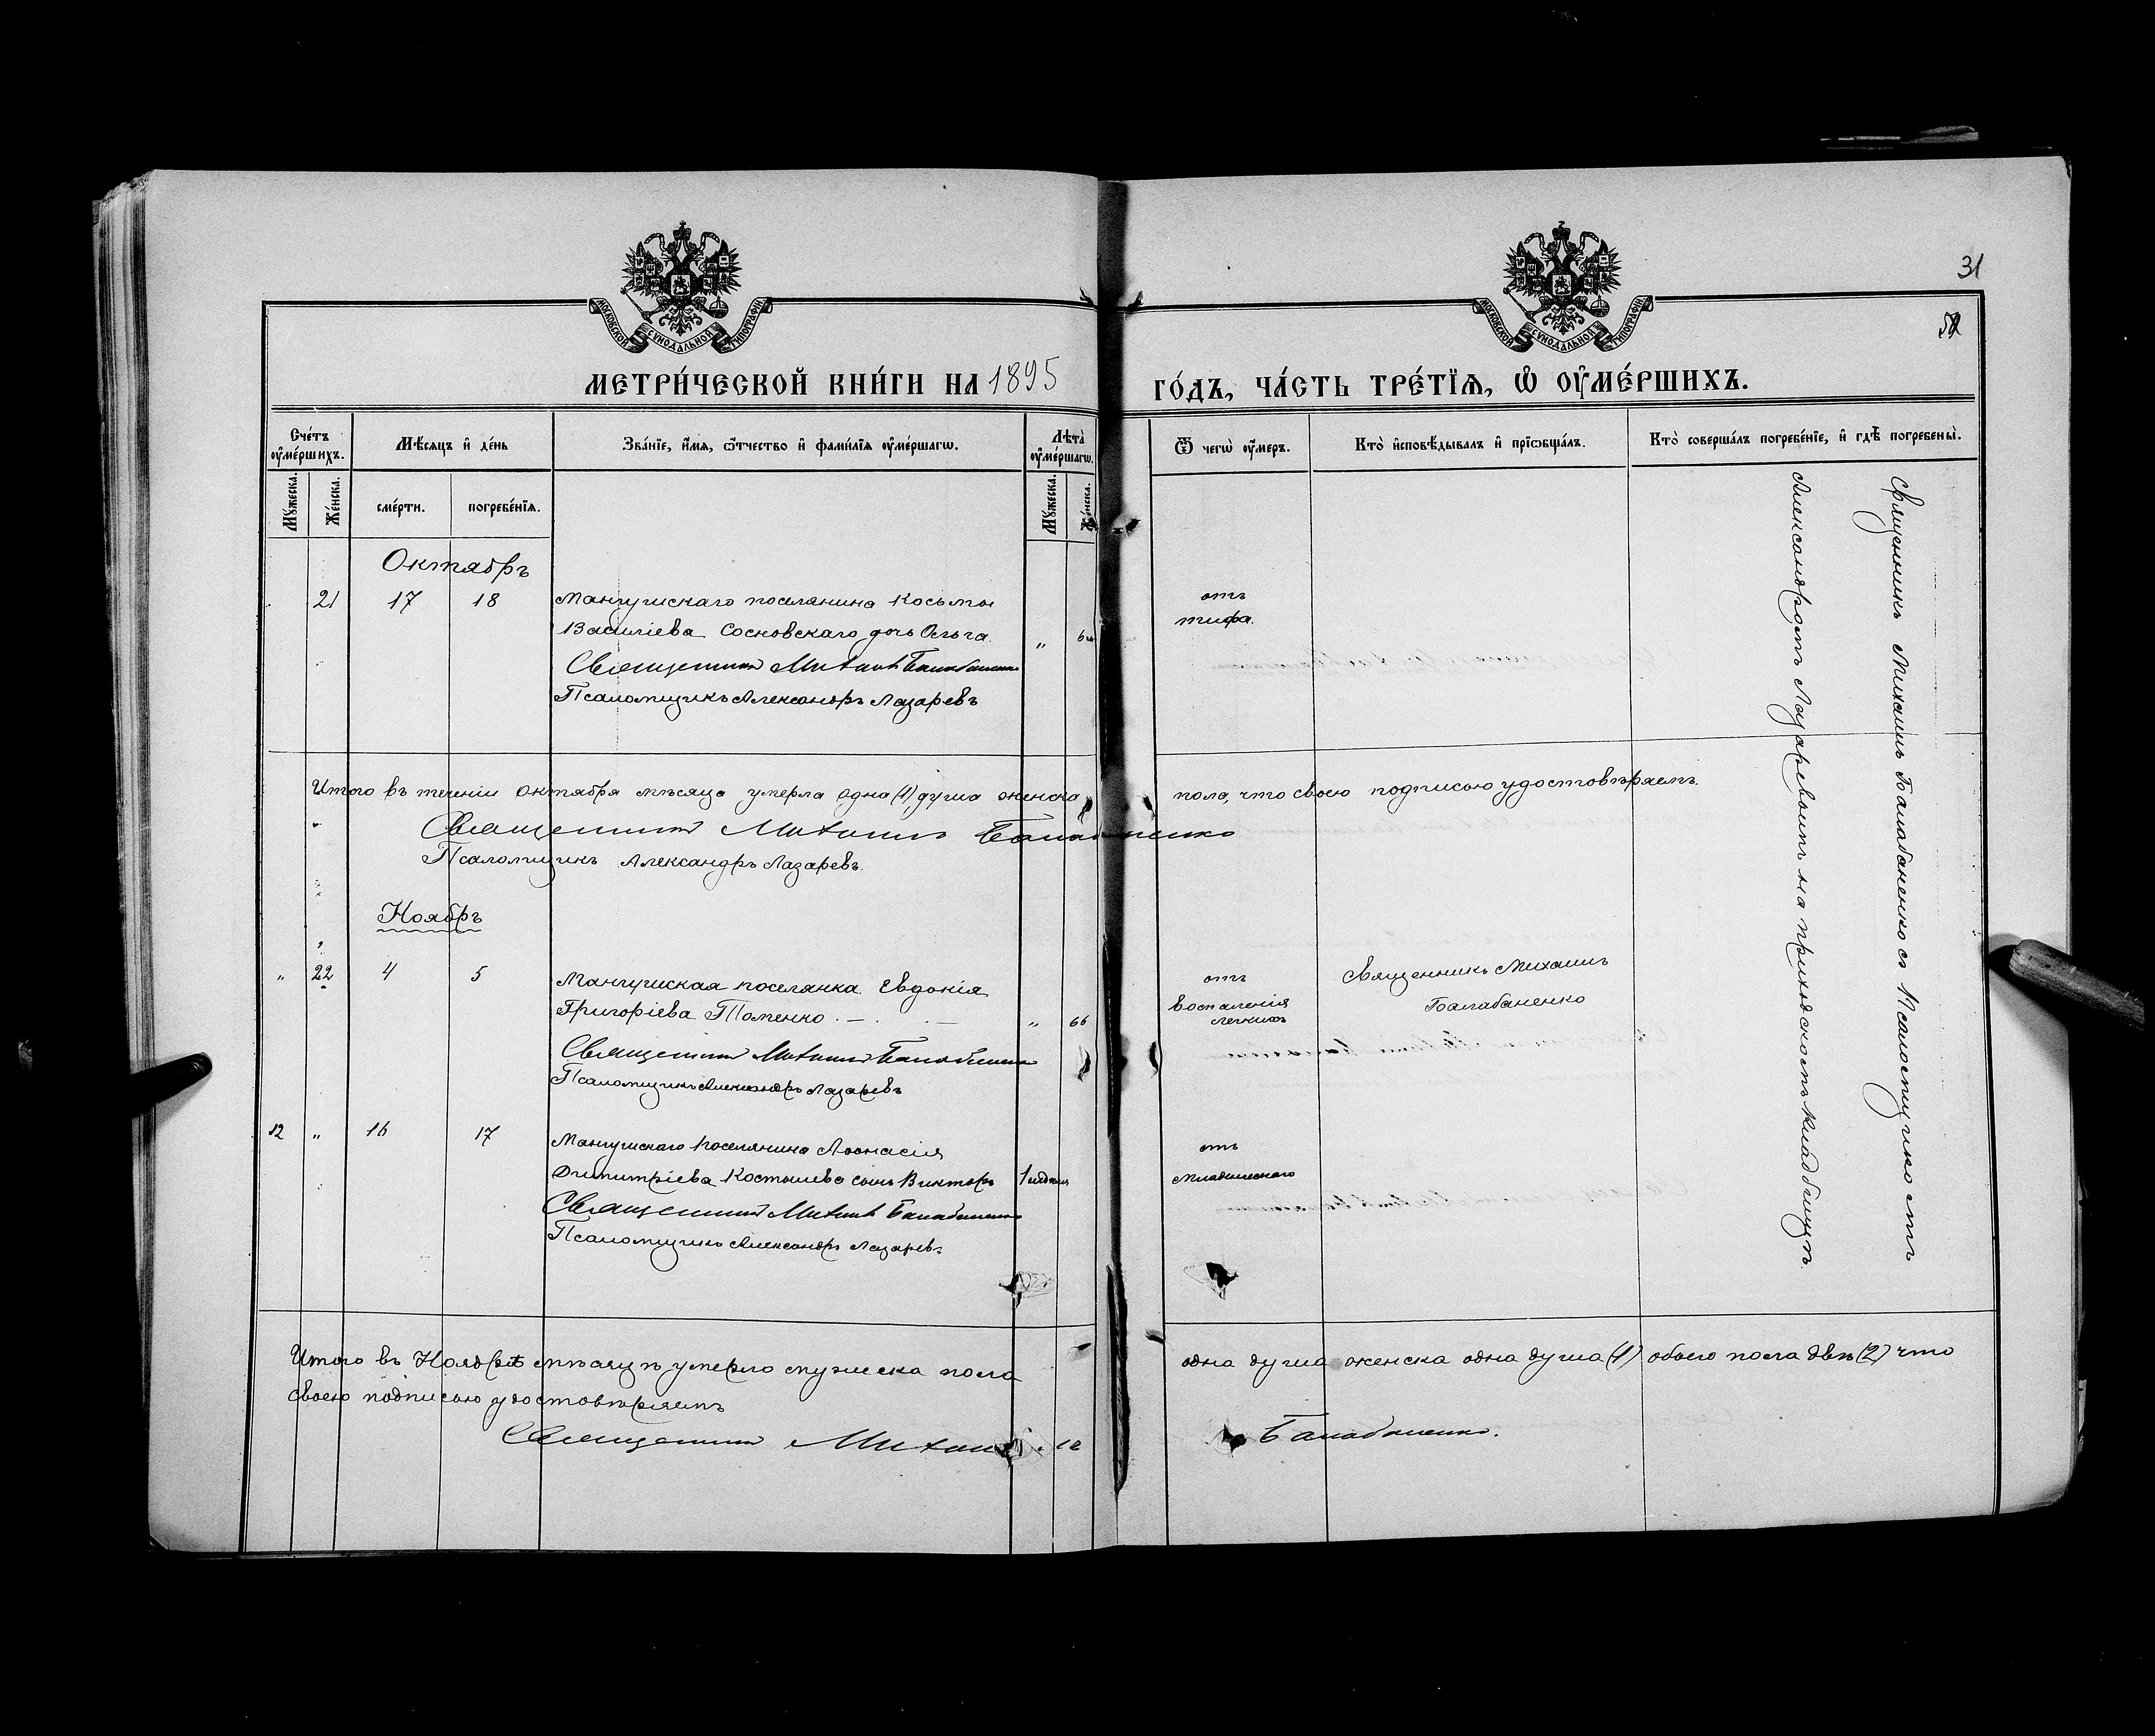 31
52
МОСКОВСКОЙ СѴНОДАЛЬНОЙ ТИПОГРАФІИ
МОСКОВСКОЙ СѴНОДАЛЬНОЙ ТИПОГРАФІИ
МЕТРИ́ЧЕСКОЙ КНИ́ГИ НА 1895 ГО́ДЪ, ЧА́СТЬ ТРЕ́ТЇѦ, Ѡ҆ ОУ҆МЕ́РШИХЪ.
Сче́тъ оу҆ме́ршихъ.
Мѣ́сяцъ и҆ де́нь
Зва́нїе, и҆́мѧ, ѻ҆́тчество и҆ фами́лїѧ оу҆ме́ршагѡ.
Лѣ́та оу҆ме́ршагѡ.
Ѿ чегѡ̀ оу҆́меръ.
Кто̀ и҆сповѣ́дывалъ и҆ прїѡбща́лъ.
Кто̀ соверша́лъ погребе́нїе, и҆ гдѣ̀ погребены̀.
Мꙋ́жеска.
Же́нска.
сме́рти.
погребе́нїѧ.
Мꙋ́жеска.
Же́нска.
Октябрь
21 17 18 Мангушскаго поселянина Косьмы
отъ
Василіева Сосновскаго дочь Ольга. „
тифа.
Священникъ Михаилъ Балабаненко
Псаломщикъ Александръ Лазаревъ
Итого въ теченіи Октября мѣсяца умерла одна (1) душа женска пола, что своею подписью удостовѣряемъ.
Священникъ Михаилъ Балабаненко
Псаломщикъ Александръ Лазаревъ.
Ноябрь
„ 22 4 5 Мангушская поселянка Евдокія
отъ Священникъ Михаилъ
Григоріева Томенко . — . — „ 66
воспаленія Балабаненко
легкихъ
Священникъ Михаилъ Балабаненко
Псаломщикъ Александръ Лазаревъ
12 „ 16 17 Мангушскаго поселянина Аѳонасія
отъ
Димитріева Костылева сынъ Викторъ
младенческаго
Священникъ Михаилъ Балабаненко
Псаломщикъ Александръ Лазаревъ
Священникъ Михаилъ Балабаненко съ Псаломщикомъ
Александромъ Лазаревымъ на приходскомъ кладбищѣ.
Итого въ Ноябрѣ мѣсяцѣ умерло мужеска пола одна душа женска одна душа (1) обоего пола двѣ (2) что
своею подписью удостовѣряемъ
Священникъ Михаилъ Балабаненко.